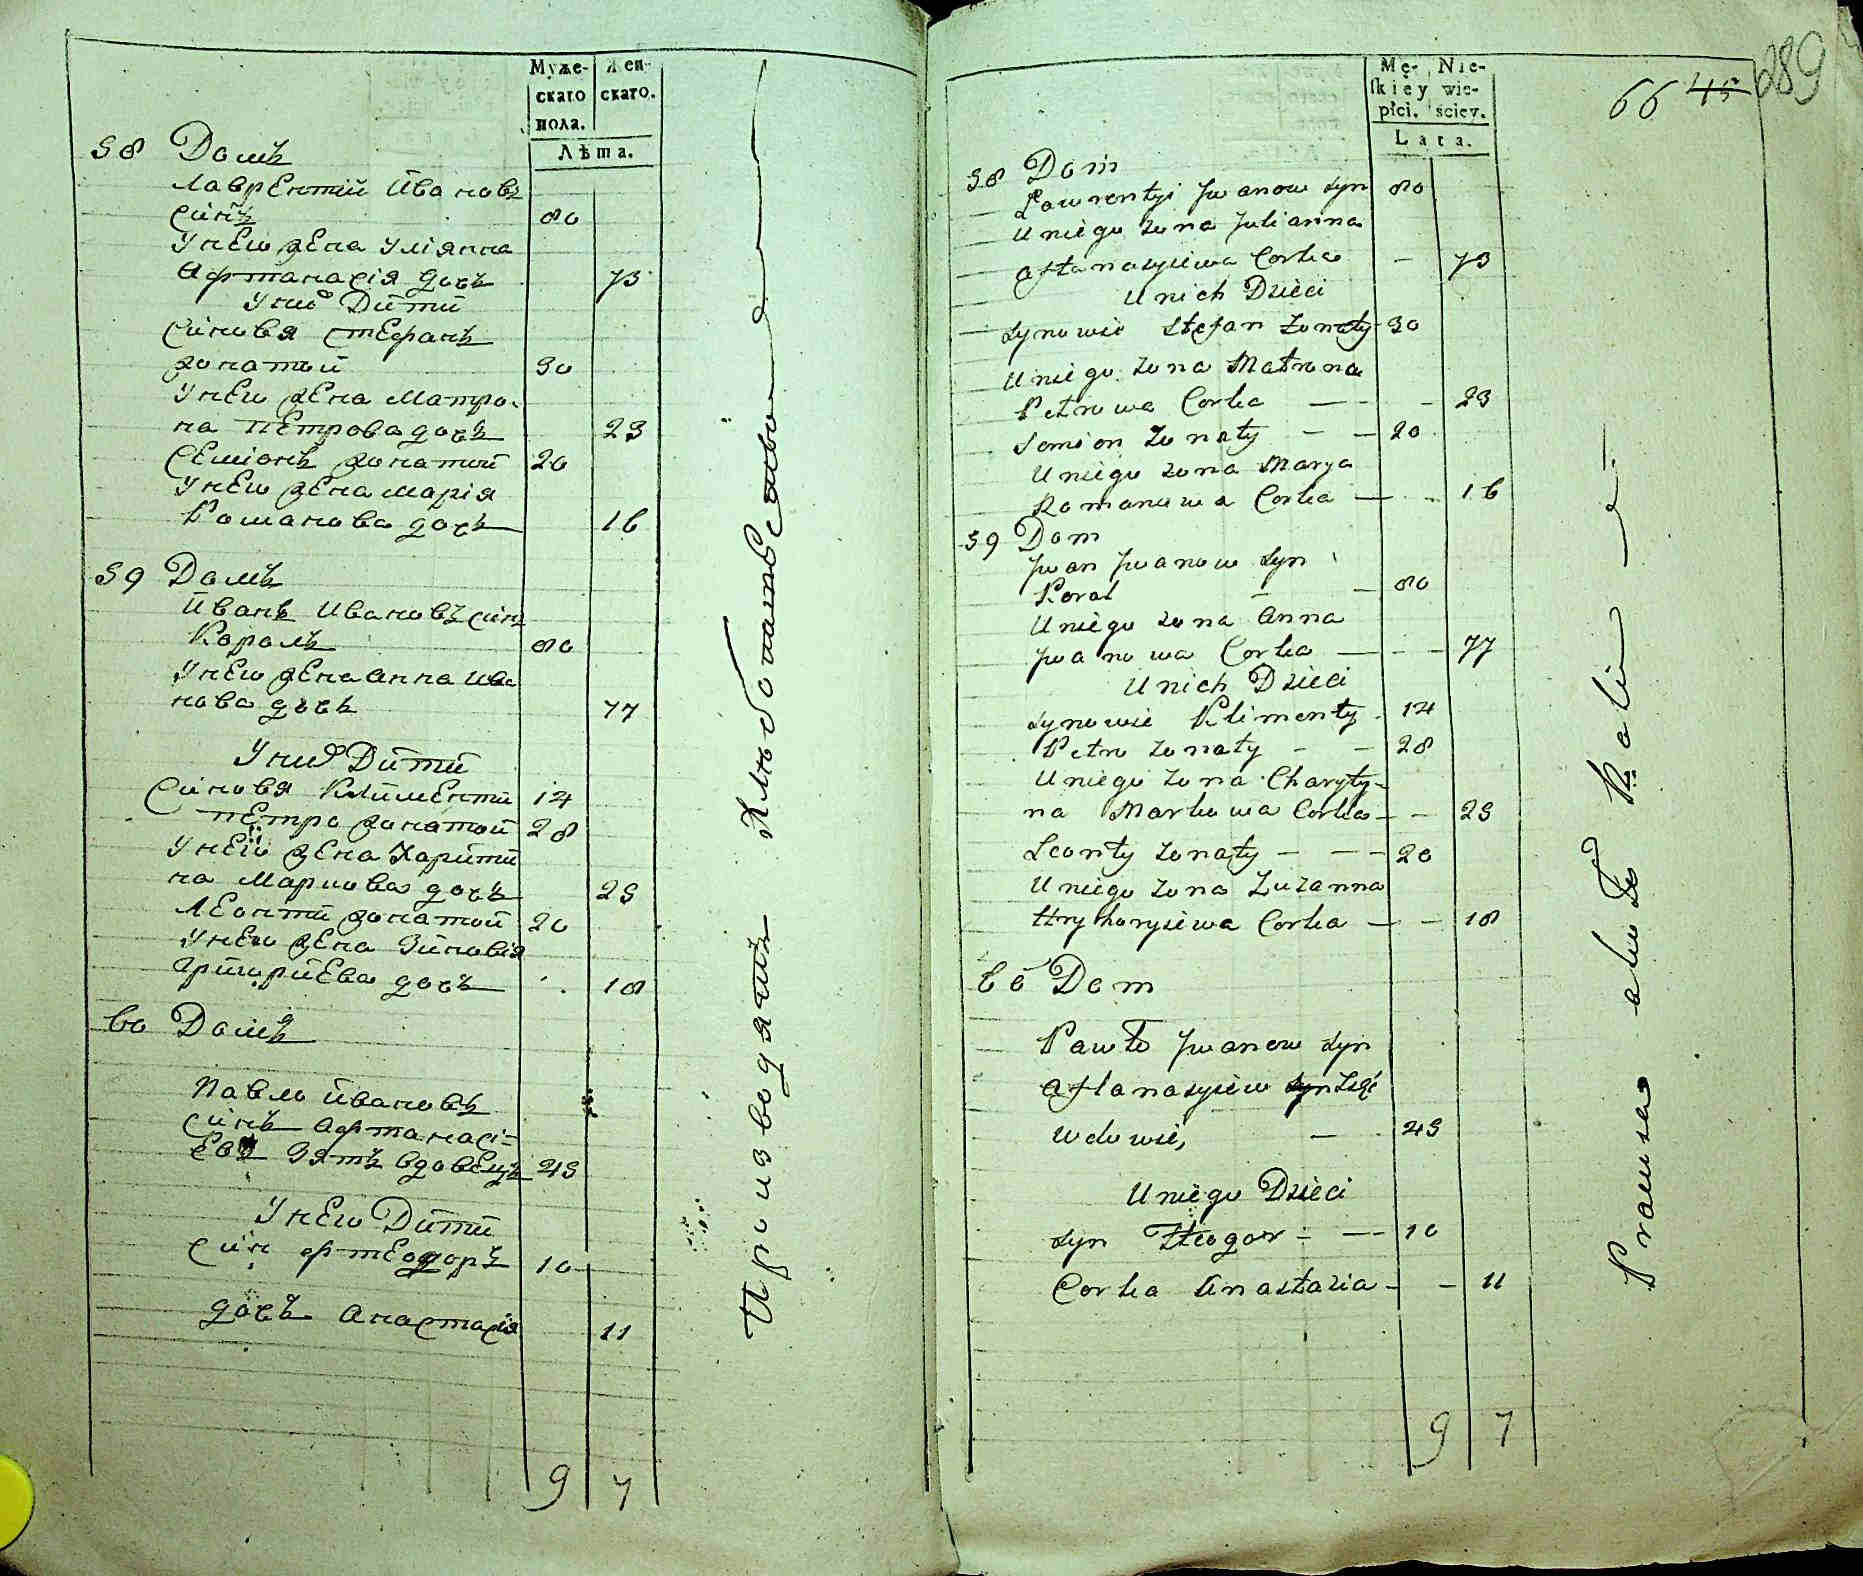 Муже- Жен-
скаго скаго.
пола.
Лѣта.
58 Домъ
Лаврентий Ивановъ
синъ 80
У него жена Улiянна
Афтанасiя дочъ 73
У нихъ Дити
Синовя Стефанъ
жонатий 30
У него жена Матро-
на Петрова дочъ 23
Семiонъ жонатий 20
У него жена Марiя
Романова дочъ 16
59 Домъ
Иванъ Ивановъ синъ
Король 80
У него жена Анна Ива
нова дочъ 77
У нихъ Дити
Синовя Климентий 14
Петро жонатий 28
У него жена Харити
на Маркова дочъ 25
Леонтий жонатий 20
У него жена Зиновiя
Григориева дочъ 18
60 Домъ
Павло Ивановъ
синъ Афтанасi-
евъ Зять вдовецъ 45
У него Дити
Син Фтеодоръ 10
дочъ Анастасiя 11
9 7
Производящъ
Mę- Nie-
skiey wie-
płci. ściey.
Lata.
66 45 289
58 Dom
Lawrentyi Jwanow syn 80
U niego żona Julianna
Aftanasyiewa Corka - 73
U nich Dzieci
Synowie Stefan żonaty 30
U niego żona Matrona
Petrowa Corka — - 23
Semion żonaty - - 20
U niego żona Marya
Romanowa Corka — - 16
59 Dom
Jwan Jwanow Syn
Korol - - 80
U niego żona Anna
Jwanowa Corka — - - 77
U nich Dzieci
Synowie Klimenty 14
Petro żonaty - - 28
U niego żona Charyty-
na Markowa Corka - - 25
Leonty żonaty - - - 20
U niego żona Zuzanna
Hryhoryiewa Corka — - 18
60 Dom
Pawło Jwanow Syn
Aftanasyiew syn Zięć
wdowiec, - 45
U niego Dzieci
Syn Fteodor - — 10
Corka Anastazia - - 11
9 7